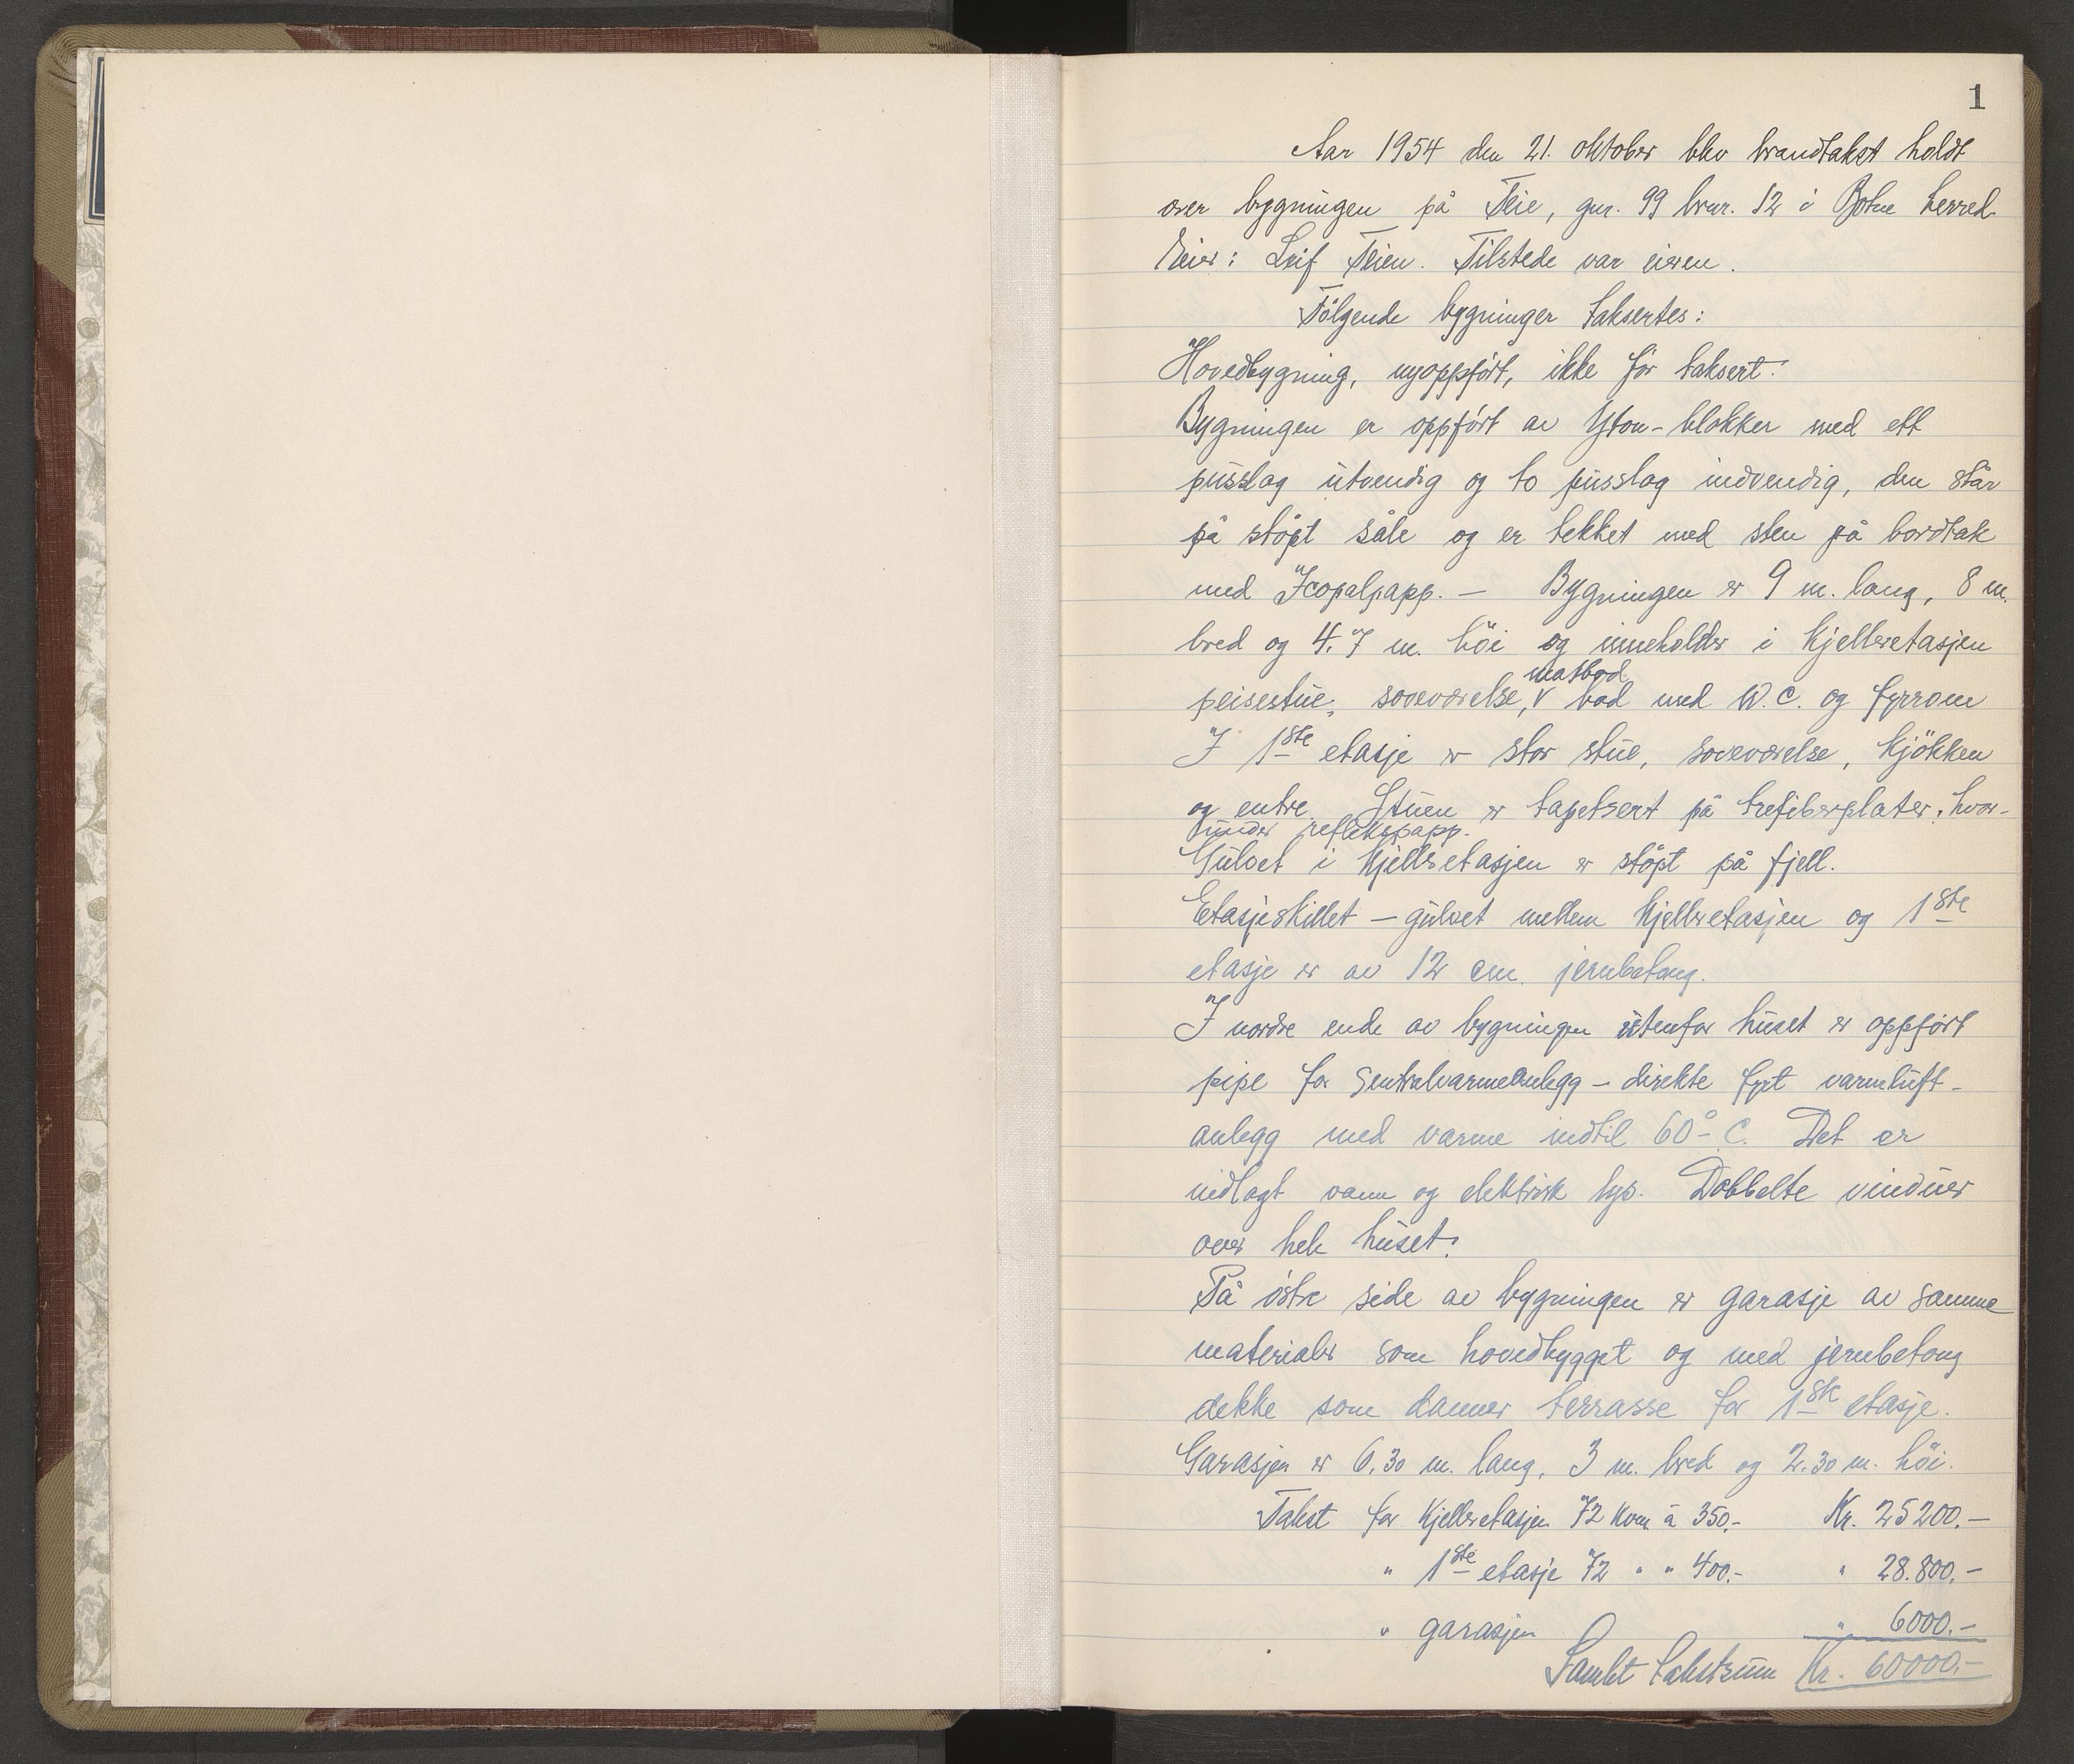 1
Aar 1954 den 21. oktober blev brandtakst holdt
over bygningen på Teie, gnr. 99 brnr. 12 i Botne herred
Eier: Leif Teien. Tilstede var eieren.
Følgende bygninger taksertes:
Hovedbygning, nyoppført, ikke før taksert.
Bygningen er oppført av Yton-blokker med ett
pusslag utvendig og to pusslag indvendig, den står
på støpt såle og er tekket med sten på bordtak
med Icopalpapp. — Bygningen er 9 m. lang, 8 m.
bred og 4.7 m. høi og inneholder i kjelleretasjen
matbod
peisestue, soveværelse, v bad med W.C. og fyrrom
I 1ste etasje er stor stue, soveværelse, kjøkken
og entre. Stuen er tapetsert på trefiberplater, hvor-
under reflekspapp.
Gulvet i kjelleretasjen er støpt på fjell.
Etasjeskillet — gulvet mellem kjelleretasjen og 1ste
etasje er av 12 cm. jernbetong.
I nordre ende av bygningen utenfor huset er oppført
pipe for sentralvarmeanlegg - direkte fyrt varmluft-
anlegg med varme indtil 60° C. Det er
indlagt vann og elektrisk lys. Dobbelte vinduer
over hele huset.
På østre side av bygningen er garasje av samme
materialer som hovedbygget og med jernbetong
dekke som danner terrasse for 1ste etasje.
Garasjen er 6,30 m. lang, 3 m. bred og 2.30 m. høi.
Takst for kjelleretasjen 72 kvm à 350.- Kr. 25200.—
" 1ste etasje 72 " " 400.- " 28.800.—
" garasjen " 6000.—
Samlet takstsum Kr. 60000.—